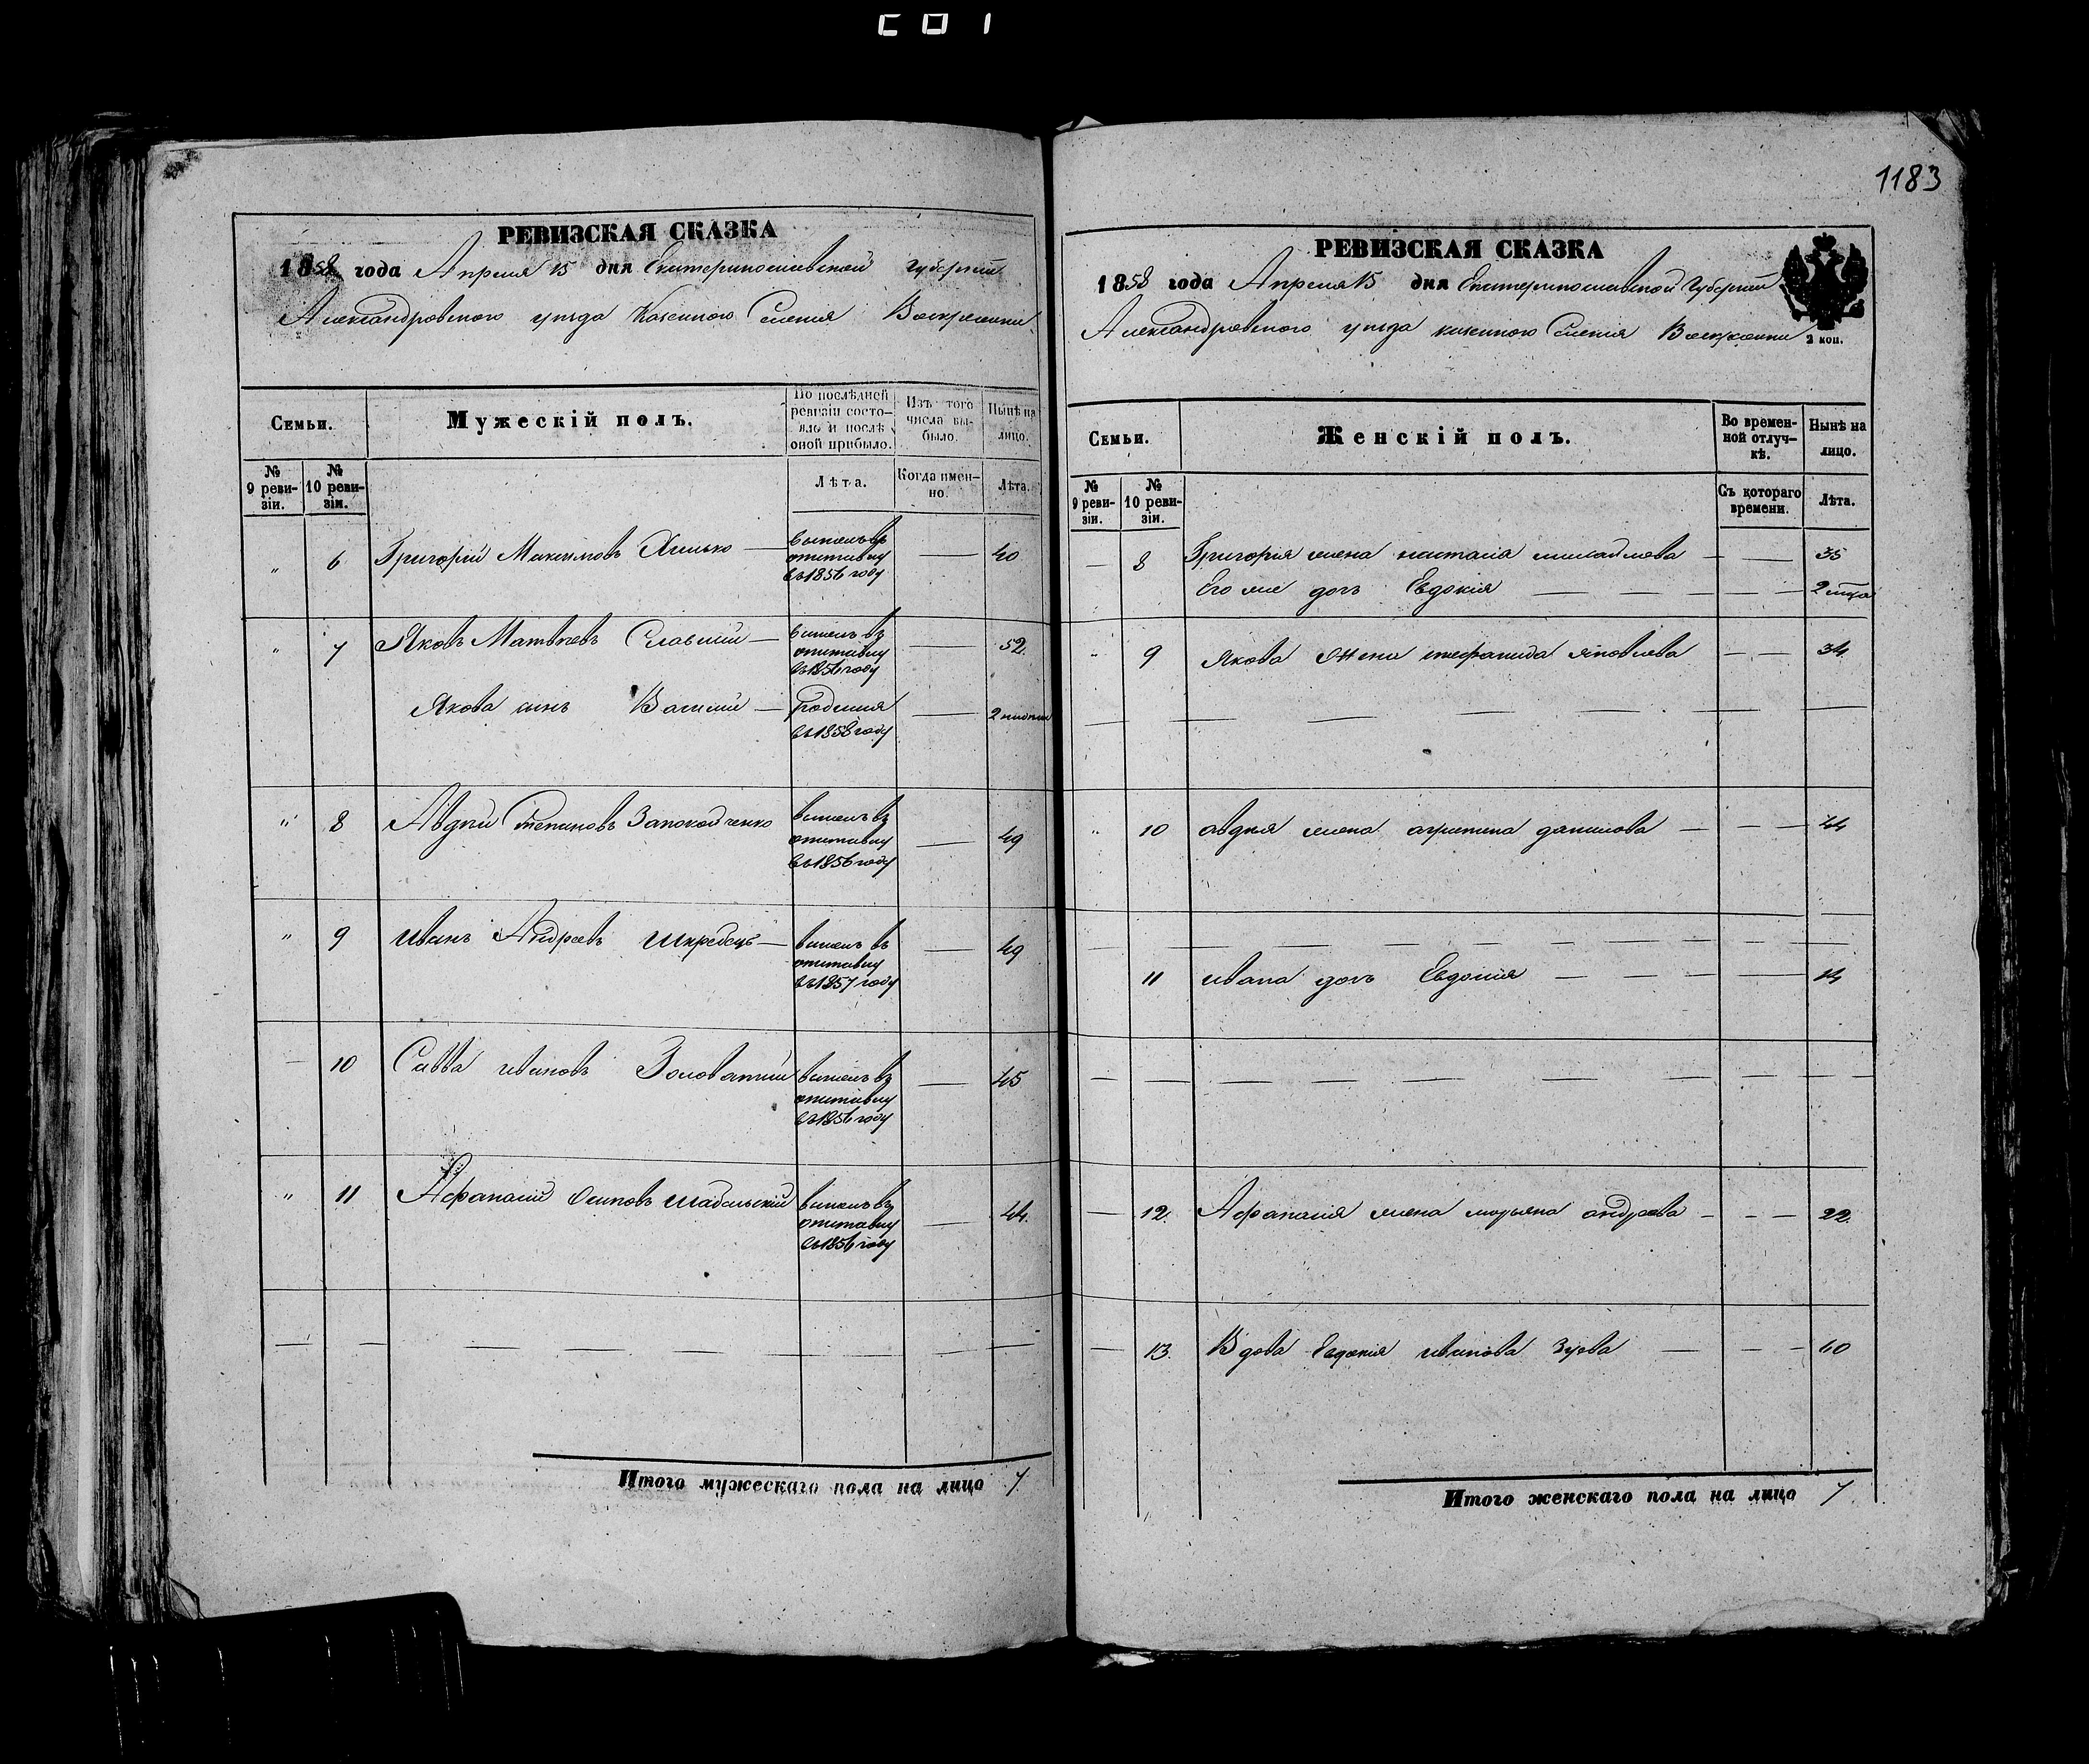 1183
РЕВИЗСКАЯ СКАЗКА
1858 года Апреля 15 дня Екатеринославской Губерніи
Александровского уѣзда Казенного Селенія Воскресенки
Семьи.
Мужескій полъ.
По послѣдней ревизіи состояло и послѣ оной прибыло.
Изъ того числа выбыло.
Нынѣ на лицо.
№ 9 ревизіи.
№ 10 ревизіи.
Лѣта.
Когда именно.
Лѣта.
„ 6 Григорій Максимовъ Хилько — вышелъ въ отставку въ 1856 году — 40
„ 7 Яковъ Матвѣевъ — вышелъ въ отставку въ 1856 году — 52
Якова сынъ Василий — въ 1858 году — 2
„ 8 Авдѣй Степановъ вышелъ въ отставку въ 1856 году — 49
„ 9 иванъ Андреевъ — вышелъ въ отставку въ 1857 году — 49
— 10 Савва ивановъ вышелъ въ отставку въ 1856 году — 45
„ 11 Афанасій Осиповъ вышелъ въ отставку въ 1856 году — 44.
Итого мужескаго пола на лицо 7
РЕВИЗСКАЯ СКАЗКА
1858 года Апреля 15 дня Екатеринославской Губерніи
Александровского уѣзда казенного Селенія Воскресенки
2 коп.
Семьи.
Женскій полъ.
Во временной отлучкѣ.
Нынѣ на лицо.
№ 9 ревизіи.
№ 10 ревизіи.
Съ котораго времени.
Лѣта.
— 8 Григорія жена настасія михайлова — — 35
Его же дочь Евдокія — — — — — 2
„ 9 Якова жена степанида яковлева — — 34
„ 10 авдея жена агрипина данилова — — — 44
11 ивана дочь Евдокія — — — — 14
— 12. Афанасія жена марьяна андреева — — — 22.
— 13. Вдова Евдокія иванова Зуева — — — 60
Итого женскаго пола на лицо 7